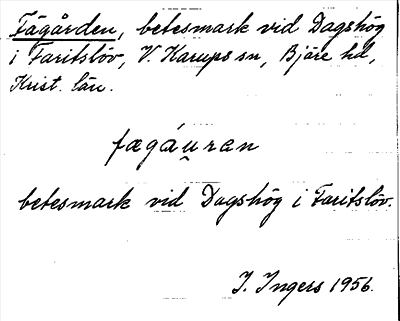 Fägården, betesmark vid Dagshög
i Faritslöv, V. Karups sn, Bjäre hd,
Krist. län.
fægáu̯ran
betesmark vid Dagshög i Faritslöv.
I. Ingers 1956.